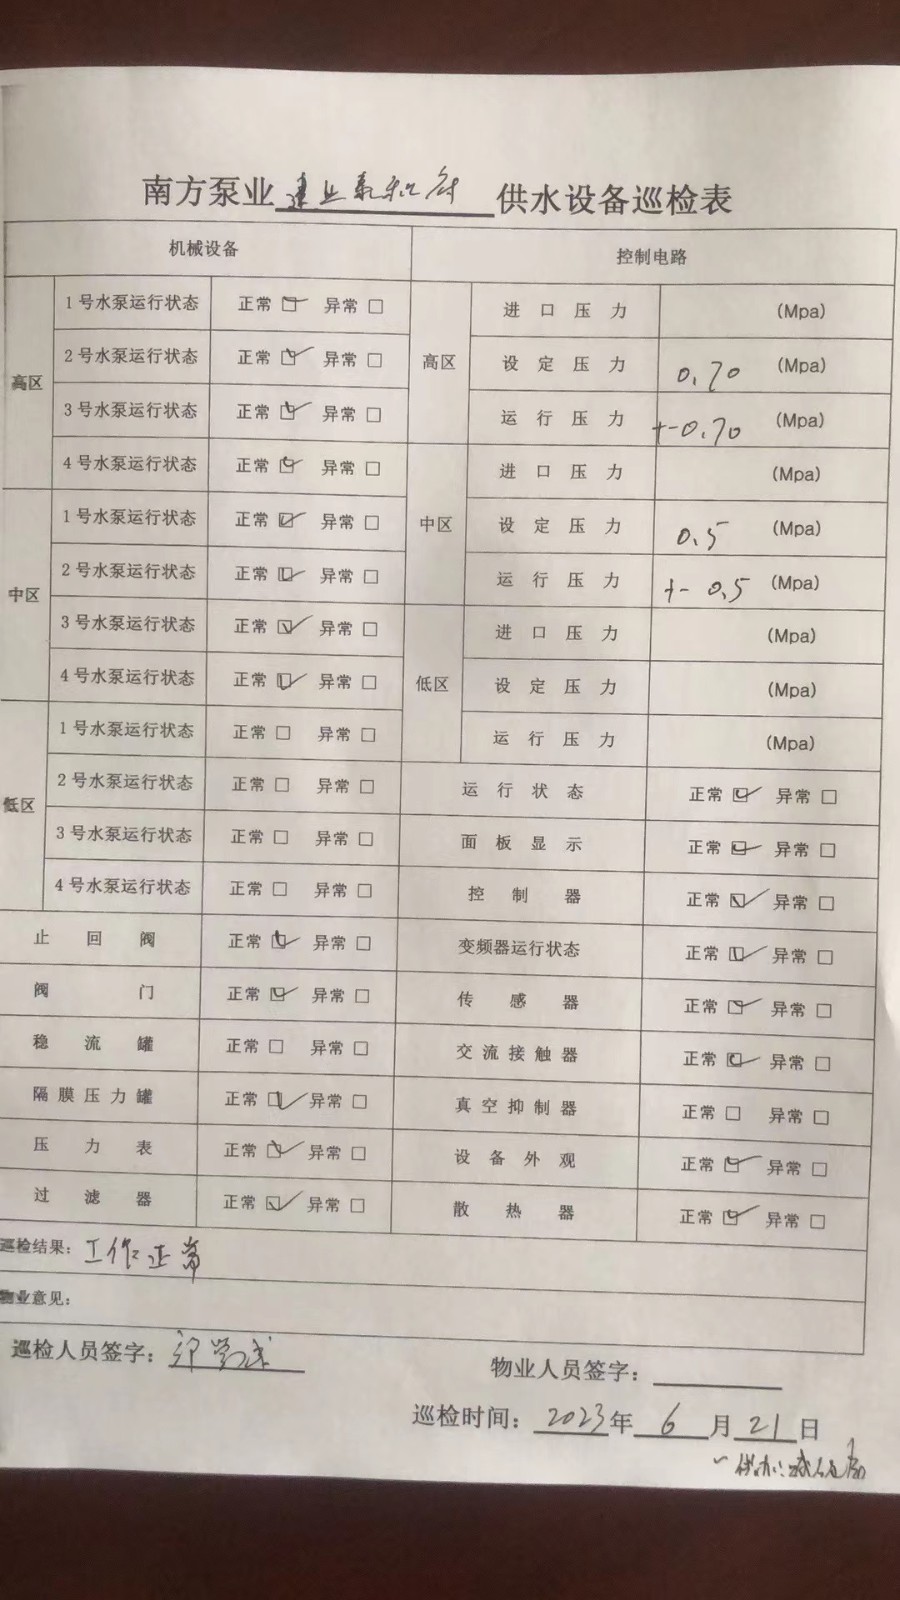 南方泵业 建业 供水设备巡检表
机械设备 控制电路
高区
1号水泵运行状态 正常☑ 异常□
2号水泵运行状态 正常☑ 异常□
3号水泵运行状态 正常☑ 异常□
4号水泵运行状态 正常☑ 异常□
中区
1号水泵运行状态 正常☑ 异常□
2号水泵运行状态 正常☑ 异常□
3号水泵运行状态 正常☑ 异常□
4号水泵运行状态 正常☑ 异常□
低区
1号水泵运行状态 正常□ 异常□
2号水泵运行状态 正常□ 异常□
3号水泵运行状态 正常□ 异常□
4号水泵运行状态 正常□ 异常□
止回阀 正常☑ 异常□
阀门 正常☑ 异常□
稳流罐 正常□ 异常□
隔膜压力罐 正常☑ 异常□
压力表 正常☑ 异常□
过滤器 正常☑ 异常□
高区
进口压力 (Mpa)
设定压力 0.70 (Mpa)
运行压力 +-0.70 (Mpa)
中区
进口压力 (Mpa)
设定压力 0.5 (Mpa)
运行压力 +- 0.5 (Mpa)
低区
进口压力 (Mpa)
设定压力 (Mpa)
运行压力 (Mpa)
运行状态 正常☑ 异常□
面板显示 正常☑ 异常□
控制器 正常☑ 异常□
变频器运行状态 正常☑ 异常□
传感器 正常☑ 异常□
交流接触器 正常☑ 异常□
真空抑制器 正常□ 异常□
设备外观 正常☑ 异常□
散热器 正常☑ 异常□
巡检结果：工作正常
物业意见：
巡检人员签字：
物业人员签字：
巡检时间：2023年6月21日